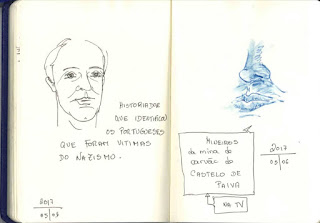 HISTORIADOR
QUE IDENTIFICOU
OS PORTUGUESES
QUE FORAM VITIMAS
DO NAZISMO.
2017
05/03
MINEIROS
da mina do
carvão do
CASTELO DE
PAIVA
NA TV
2017
05/06